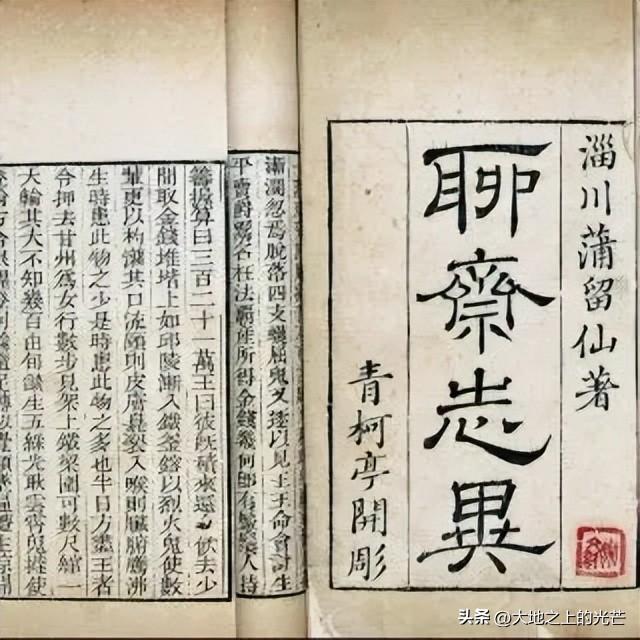 淄川蒲留仙著
聊齋志異
青柯亭開彫
漸濶忽焉脫落四支蠖屈鬼又逐以見王王命會計生
平賣爵鬻名枉法霸產所得金錢幾何即有鬡鬚人持
籌握算曰三百二十一萬王曰彼既積來還令飲去少
間取金錢堆堦上如邱陵漸入鐵釜鎔以烈火鬼使數
輩更以杓灌其口流頤則皮膚臭裂入喉則臟腑騰沸
生時患此物之少是時患此物之多也半日方盡王者
令押去甘州為女行數步見架上鐵梁圍可數尺綰一
火輪其大不知幾百由旬燄生五綵光耿雲霄鬼撻使
头条 @大地之上的光芒